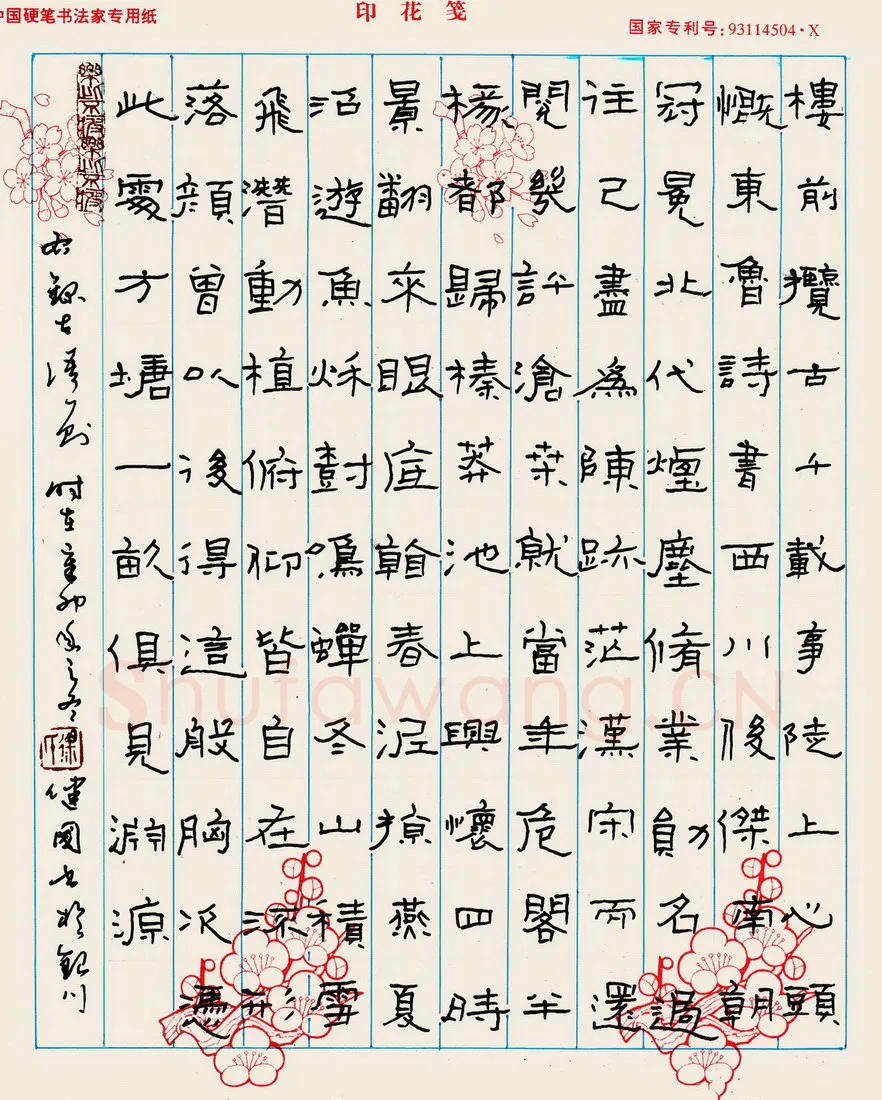 中国硬笔书法家专用纸
印花笺
国家专利号:93114504·X
樓前攬古千載事陡上心頭
慨東魯詩書西川俊傑南朝
冠冕北代煙塵脩業勛名過
往已盡為陳跡茫漢宋而還
閱幾許滄桒就當年危閣半
椽都歸榛莽池上興懷四時
景翻來眼底翰春涯撩燕夏
沼遊魚秌樹鳴蟬冬山積雪
飛潛動植俯仰皆自在流形
落顏曾以後得這般胸次憑
此處方塘一畝俱見淵源
右錄古 時在辛卯年之冬 健國書於銀川
Shufawang.CN